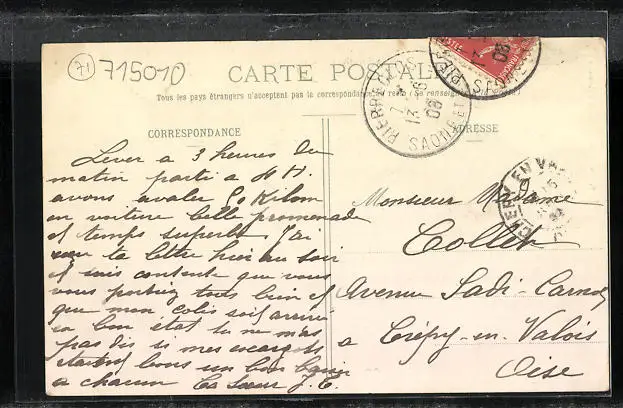 71 715010
CARTE POSTALE
Tous les pays étrangers n'acceptent pas la correspondance au recto (Se renseigner
CORRESPONDANCE
ADRESSE
PIERRE SAONE ET
13 -6
08
CREPY EN VALOIS
Lever a 3 heures du
matin partis a 4 H.
avons avaler 90 Kilom
en voiture belle promenade
et temps superbe J'ai
la lettre hier au soir
et suis contente que vous
vous portiez tous bien et
que mon colis soit arrivé
en bon état tu ne m'as
pas dis si mes escargots
étaient bons un bon baiser
a chacun ta soeur J. C.
Monsieur Madame
Collet
Avenue Sadi-Carnot
a Crépy-en-Valois
Oise